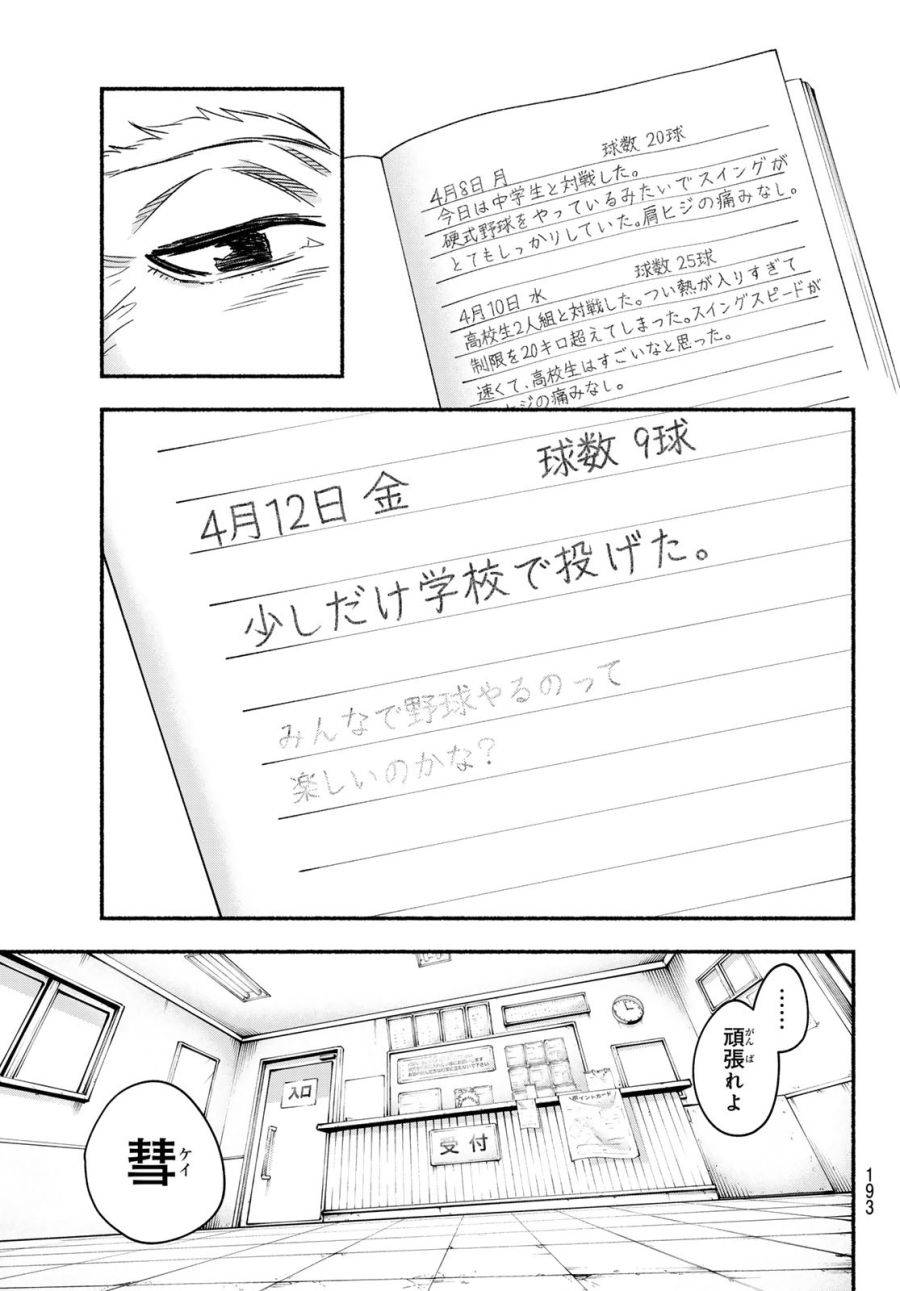 4月8日 月 球数 20球
今日は中学生と対戦した。
硬式野球をやっているみたいでスイングが
とてもしっかりしていた。肩ヒジの痛みなし。
4月10日 水 球数 25球
高校生2人組と対戦した。つい熱が入りすぎて
制限を20キロ超えてしまった。スイングスピードが
速くて、高校生はすごいなと思った。
ヒジの痛みなし。
4月12日 金 球数 9球
少しだけ学校で投げた。
みんなで野球やるのって
楽しいのかな?
……
頑張れよ
がんば
入口
受付
ポイントカード
彗
ケイ
193